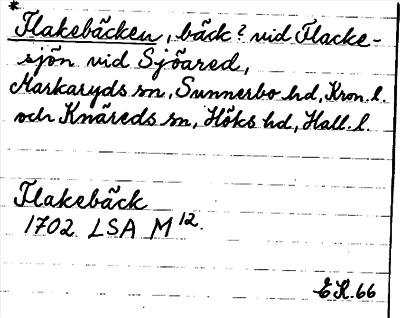 *
Flakebäcken, bäck? vid Flacke-
sjön vid Sjöared,
Markaryds sn, Sunnerbo hd, Kron. l.
och Knäreds sn, Höks hd, Hall. l.
Flakebäck
1702 LSA M 12.
E.K. 66